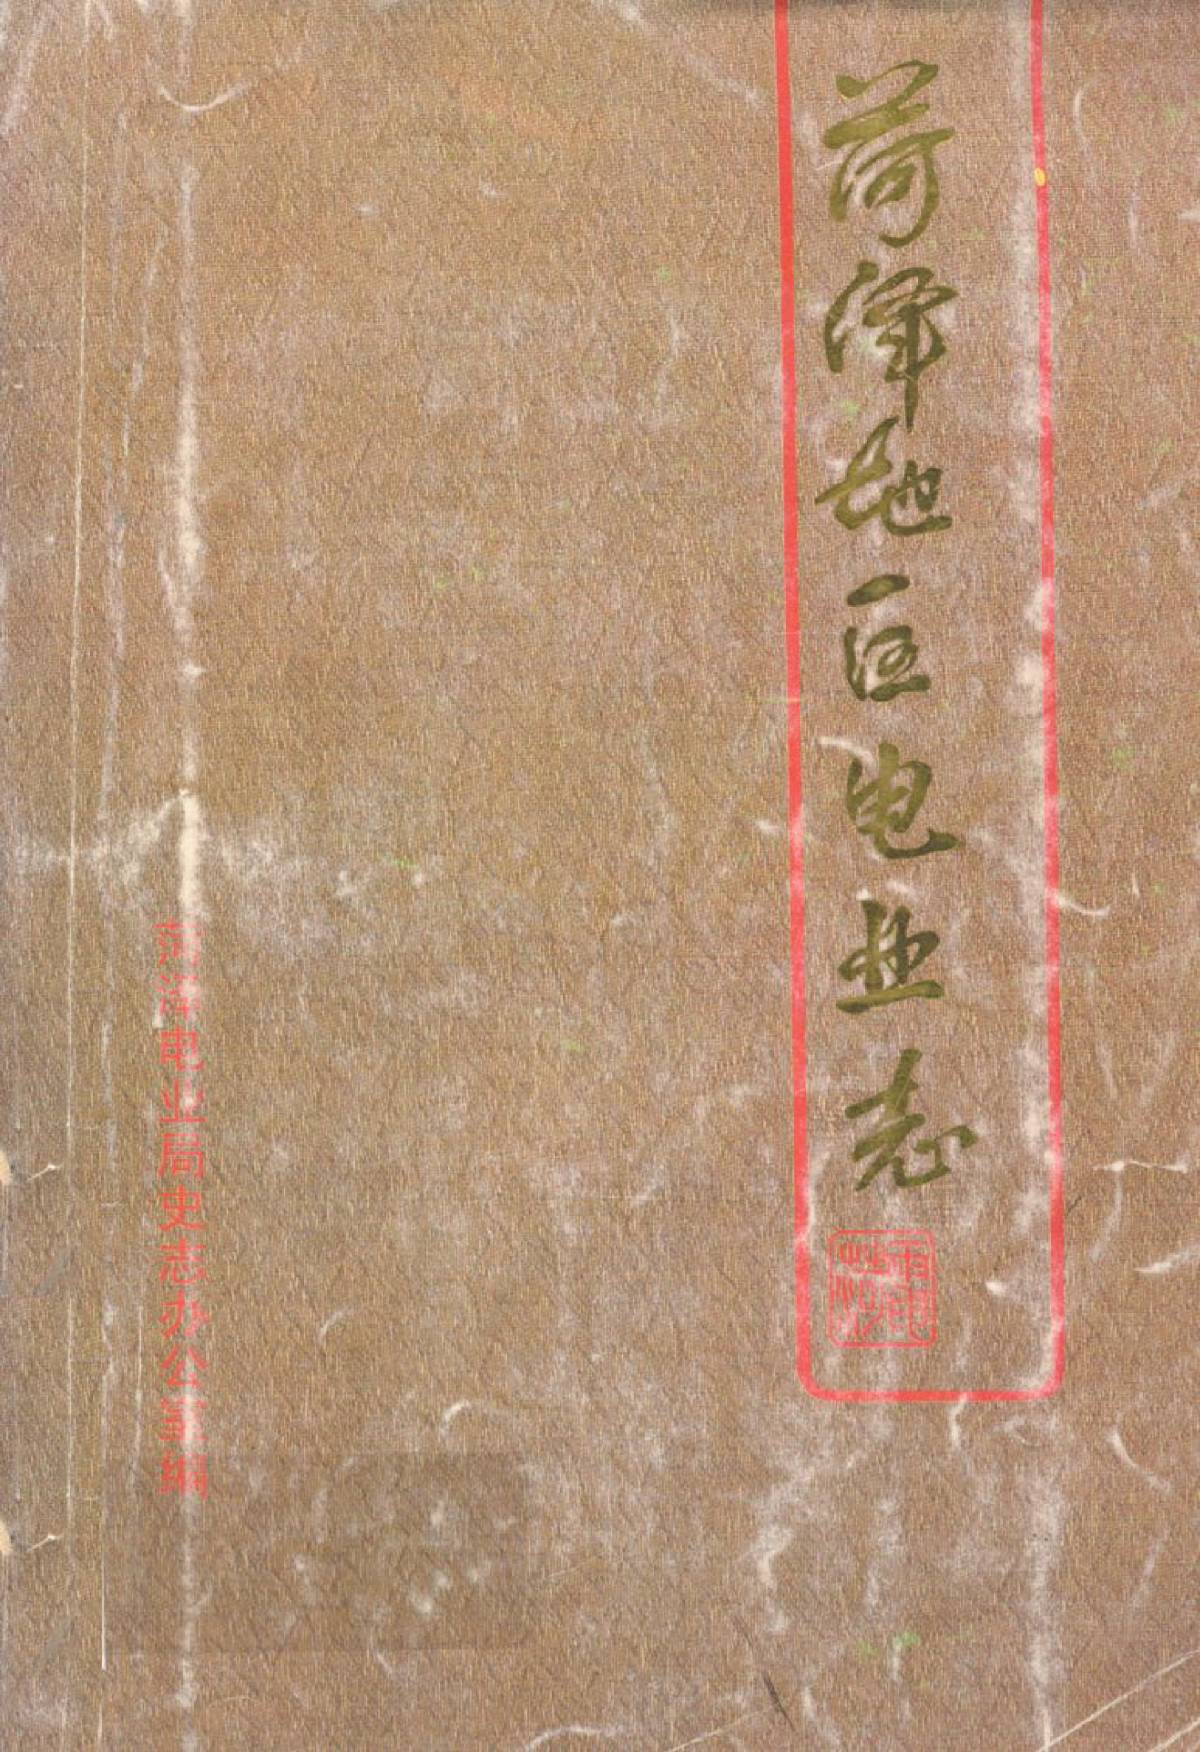 菏泽地区电业志
菏泽电业局史志办公室编